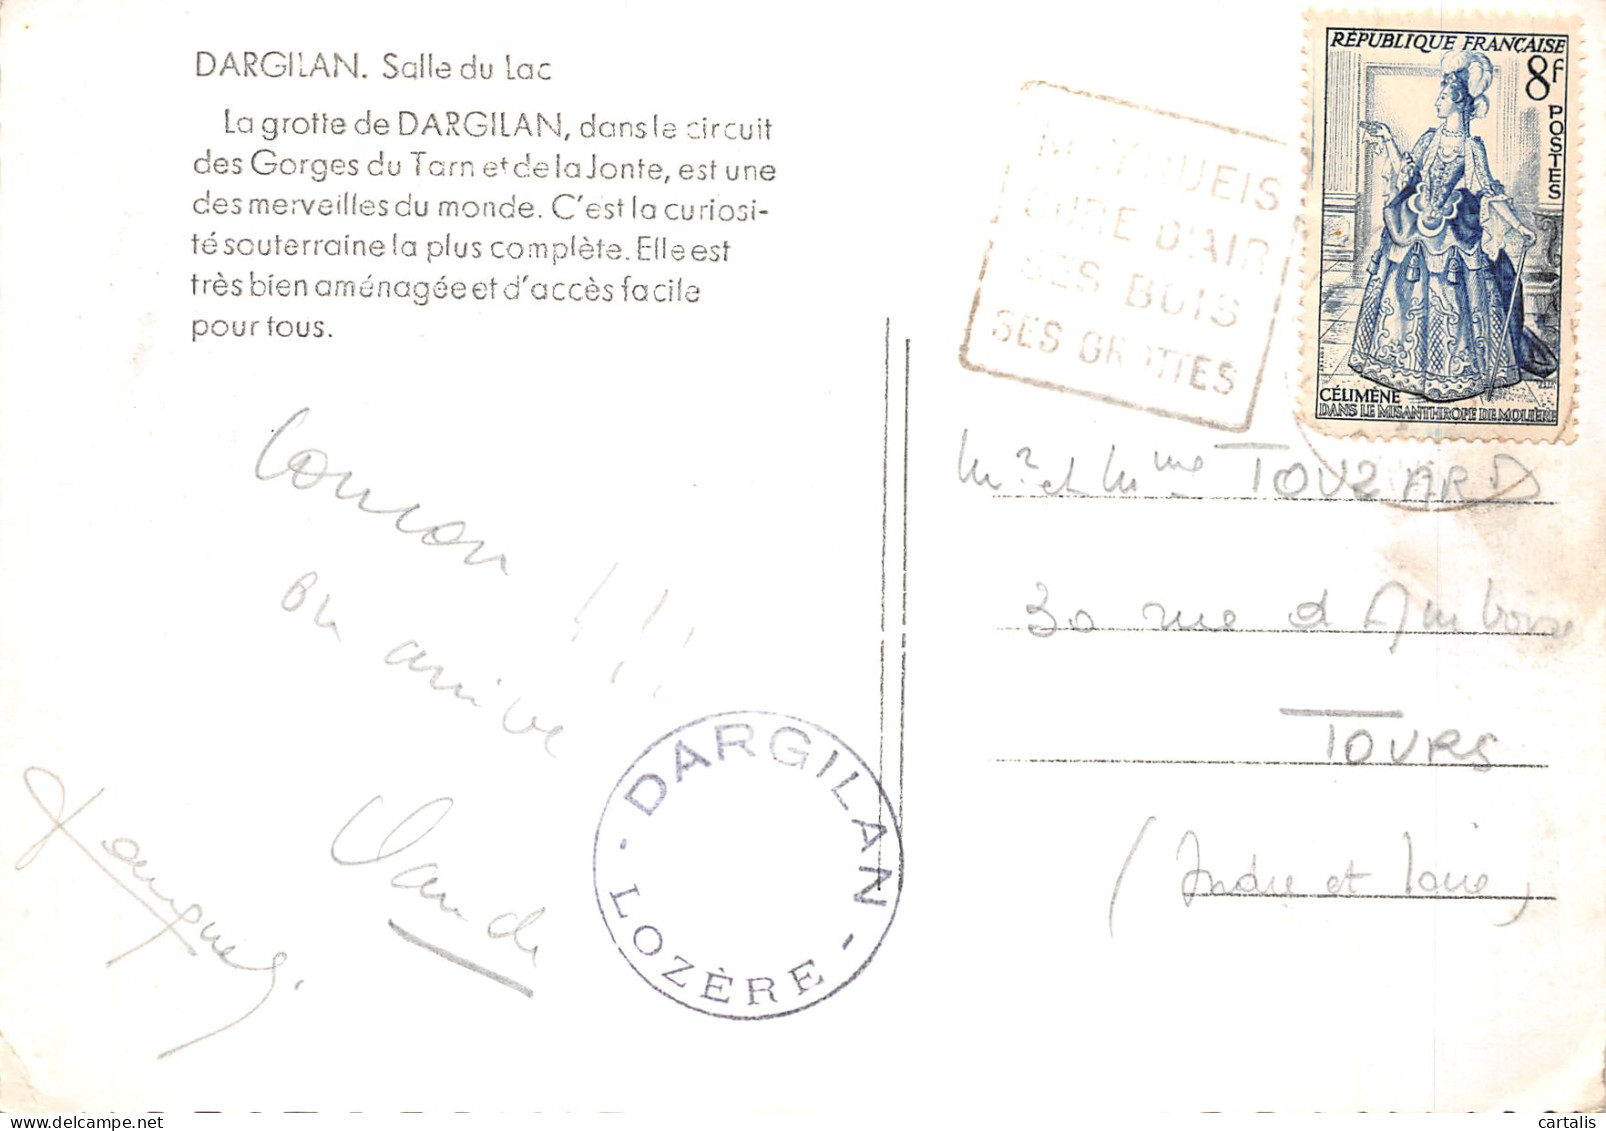 DARGILAN. Salle du Lac
La grotte de DARGILAN, dans le circuit
des Gorges du Tarn et de la Jonte, est une
des merveilles du monde. C'est la curiosi-
té souterraine la plus complète. Elle est
très bien aménagée et d'accès facile
pour tous.
RÉPUBLIQUE FRANÇAISE
8f
POSTES
CÉLIMÈNE
DANS LE MISANTHROPE DE MOLIÈRE
MEYRUEIS
CURE D'AIR
SES BOIS
SES GROTTES
Coucou !!!
on arrive
DARGILAN
- LOZÈRE -
Mr et Mme TOUZARD
30 rue d'Amboise
TOURS
(Indre et Loire)
cartalis